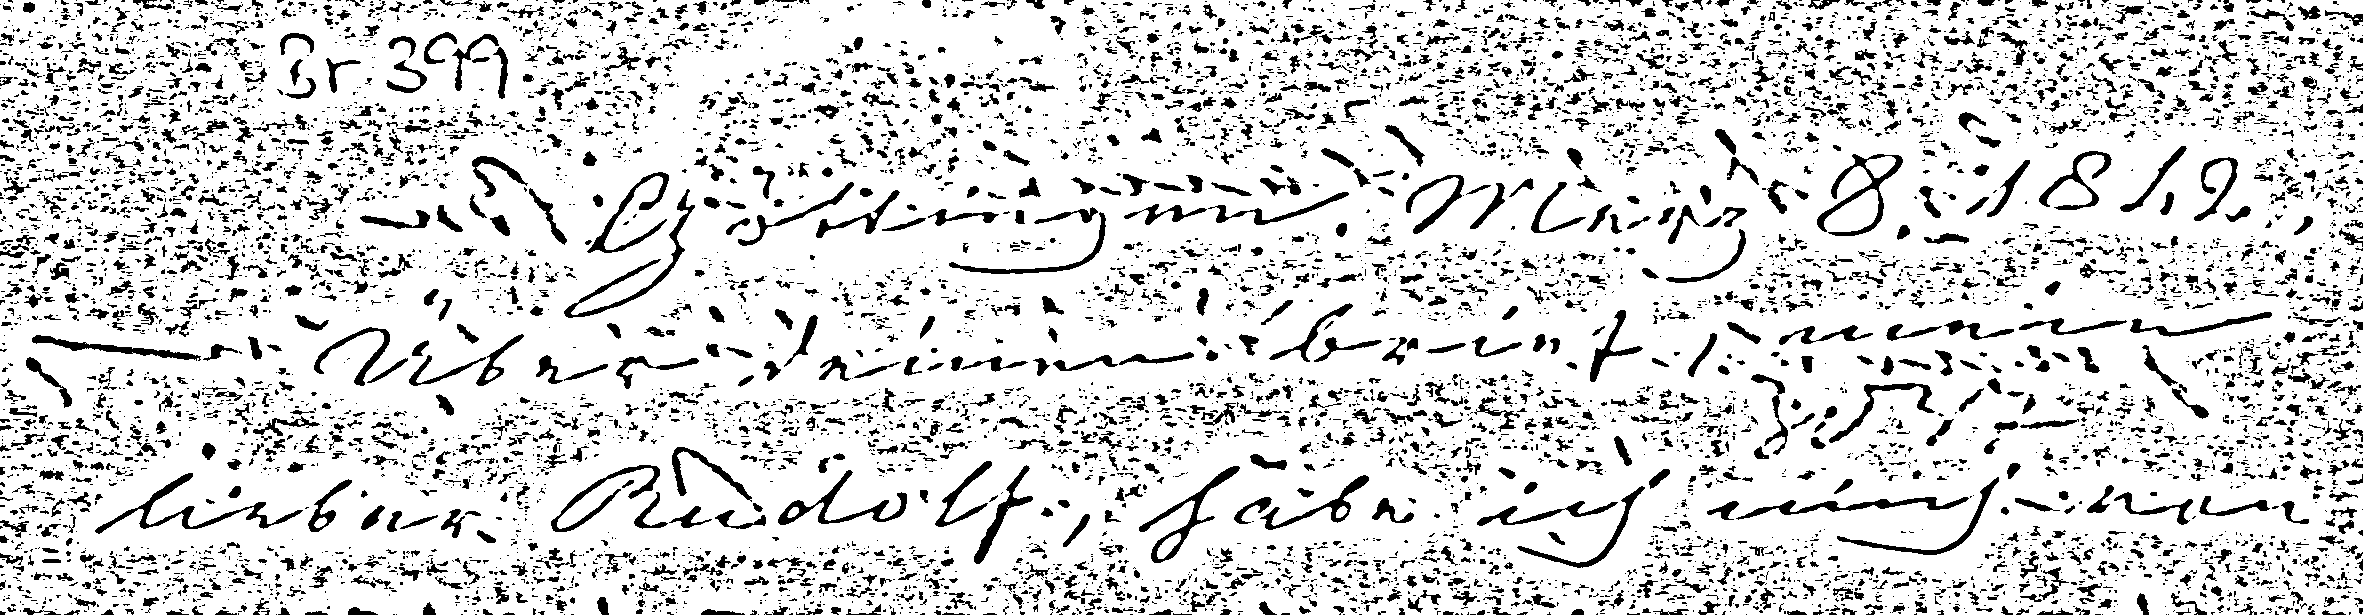 Br 399
Göttingen, März 8. 1812.,
Über deinen brief, mein
lieber Rudolf, habe ich mich von